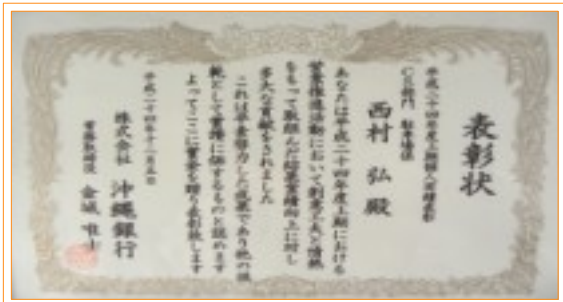 表彰状
平成二十四年度上期個人業績表彰
西村 弘 殿
あなたは平成二十四年度上期における
営業推進活動において創意工夫と情熱
をもって取組んだ結果業績向上に対し
多大な貢献をされました
これは平素努力した成果であり他の模
範として賞讃に値するものと認めます
よってここに賞金を贈り表彰致します
平成二十四年十一月五日
株式会社 沖縄銀行
金城